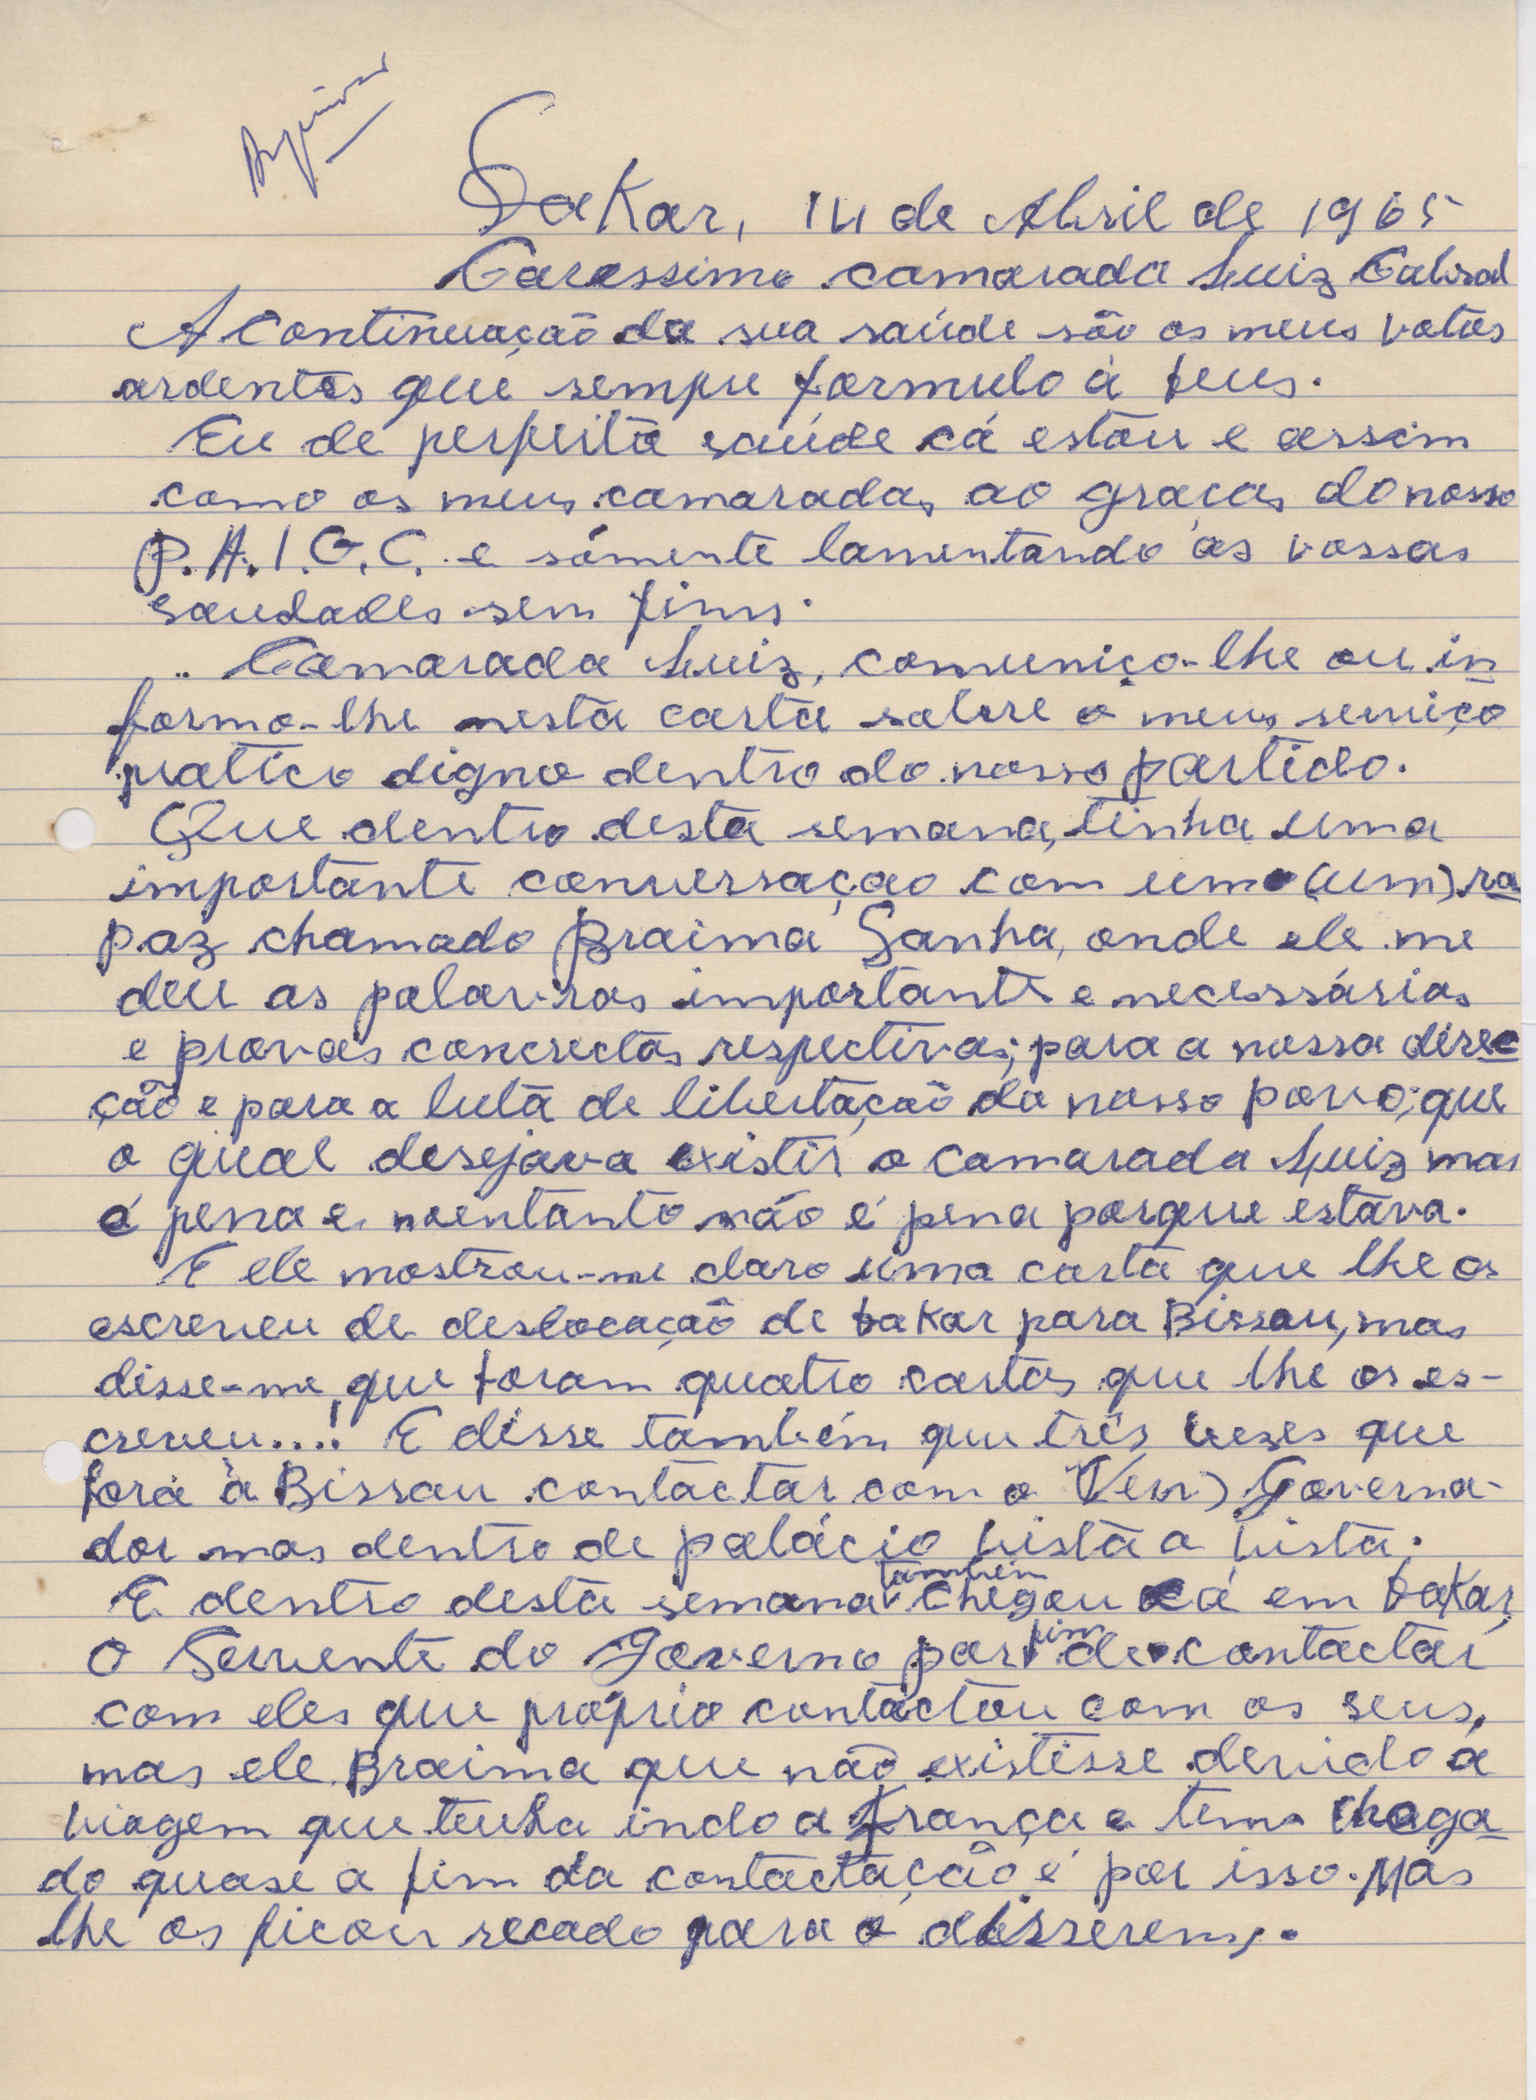 Dakar, 14 de Abril de 1965
Caressimo camarada Luiz Cabral
A Continuação da sua saúde são os meus votos
ardentes que sempre formulo à Deus.
Eu de perfeita saúde cá estou e assim
como os meus camaradas, ao graças do nosso
P.A.I.G.C. e sómente lamentando as vossas
saudades sem fims.
.. Camarada Luiz, comunico-lhe ou in
formo-lhe nesta carta sobre o meus serviço
pratico digno dentro do nosso partido.
Que dentro desta semana, tinha uma
importante conversação com um (um) ra
paz chamado Braima Sanha, onde ele me
deu as palavras importante e necessárias
e provas concrectas respectivas; para a nossa direc
ção e para a luta de libertação do nosso povo; que
o qual desejava existir o camarada Luiz mas
é pena e noentanto não é pena porque estava.
E ele mostrou-me claro uma carta que lhe os
escreveu de deslocação de Dakar para Bissau, mas
disse-me, que foram quatro cartas que lhe os es-
creveu....! E disse também que três vezes que
fora à Bissau contactar com o (Veur) Governa-
dor mas dentro de palácio vista a vista.
E dentro desta semana também chegou cá em Dakar,
O Servente do Governo por fim de contactar
com eles que próprio contactou com os seus,
mas ele Braima que não existisse devido a
viagem que tenha indo a França e tem chega
do quase a fim da contactação é por isso. Mas
lhe os ficou recado para o disserem.